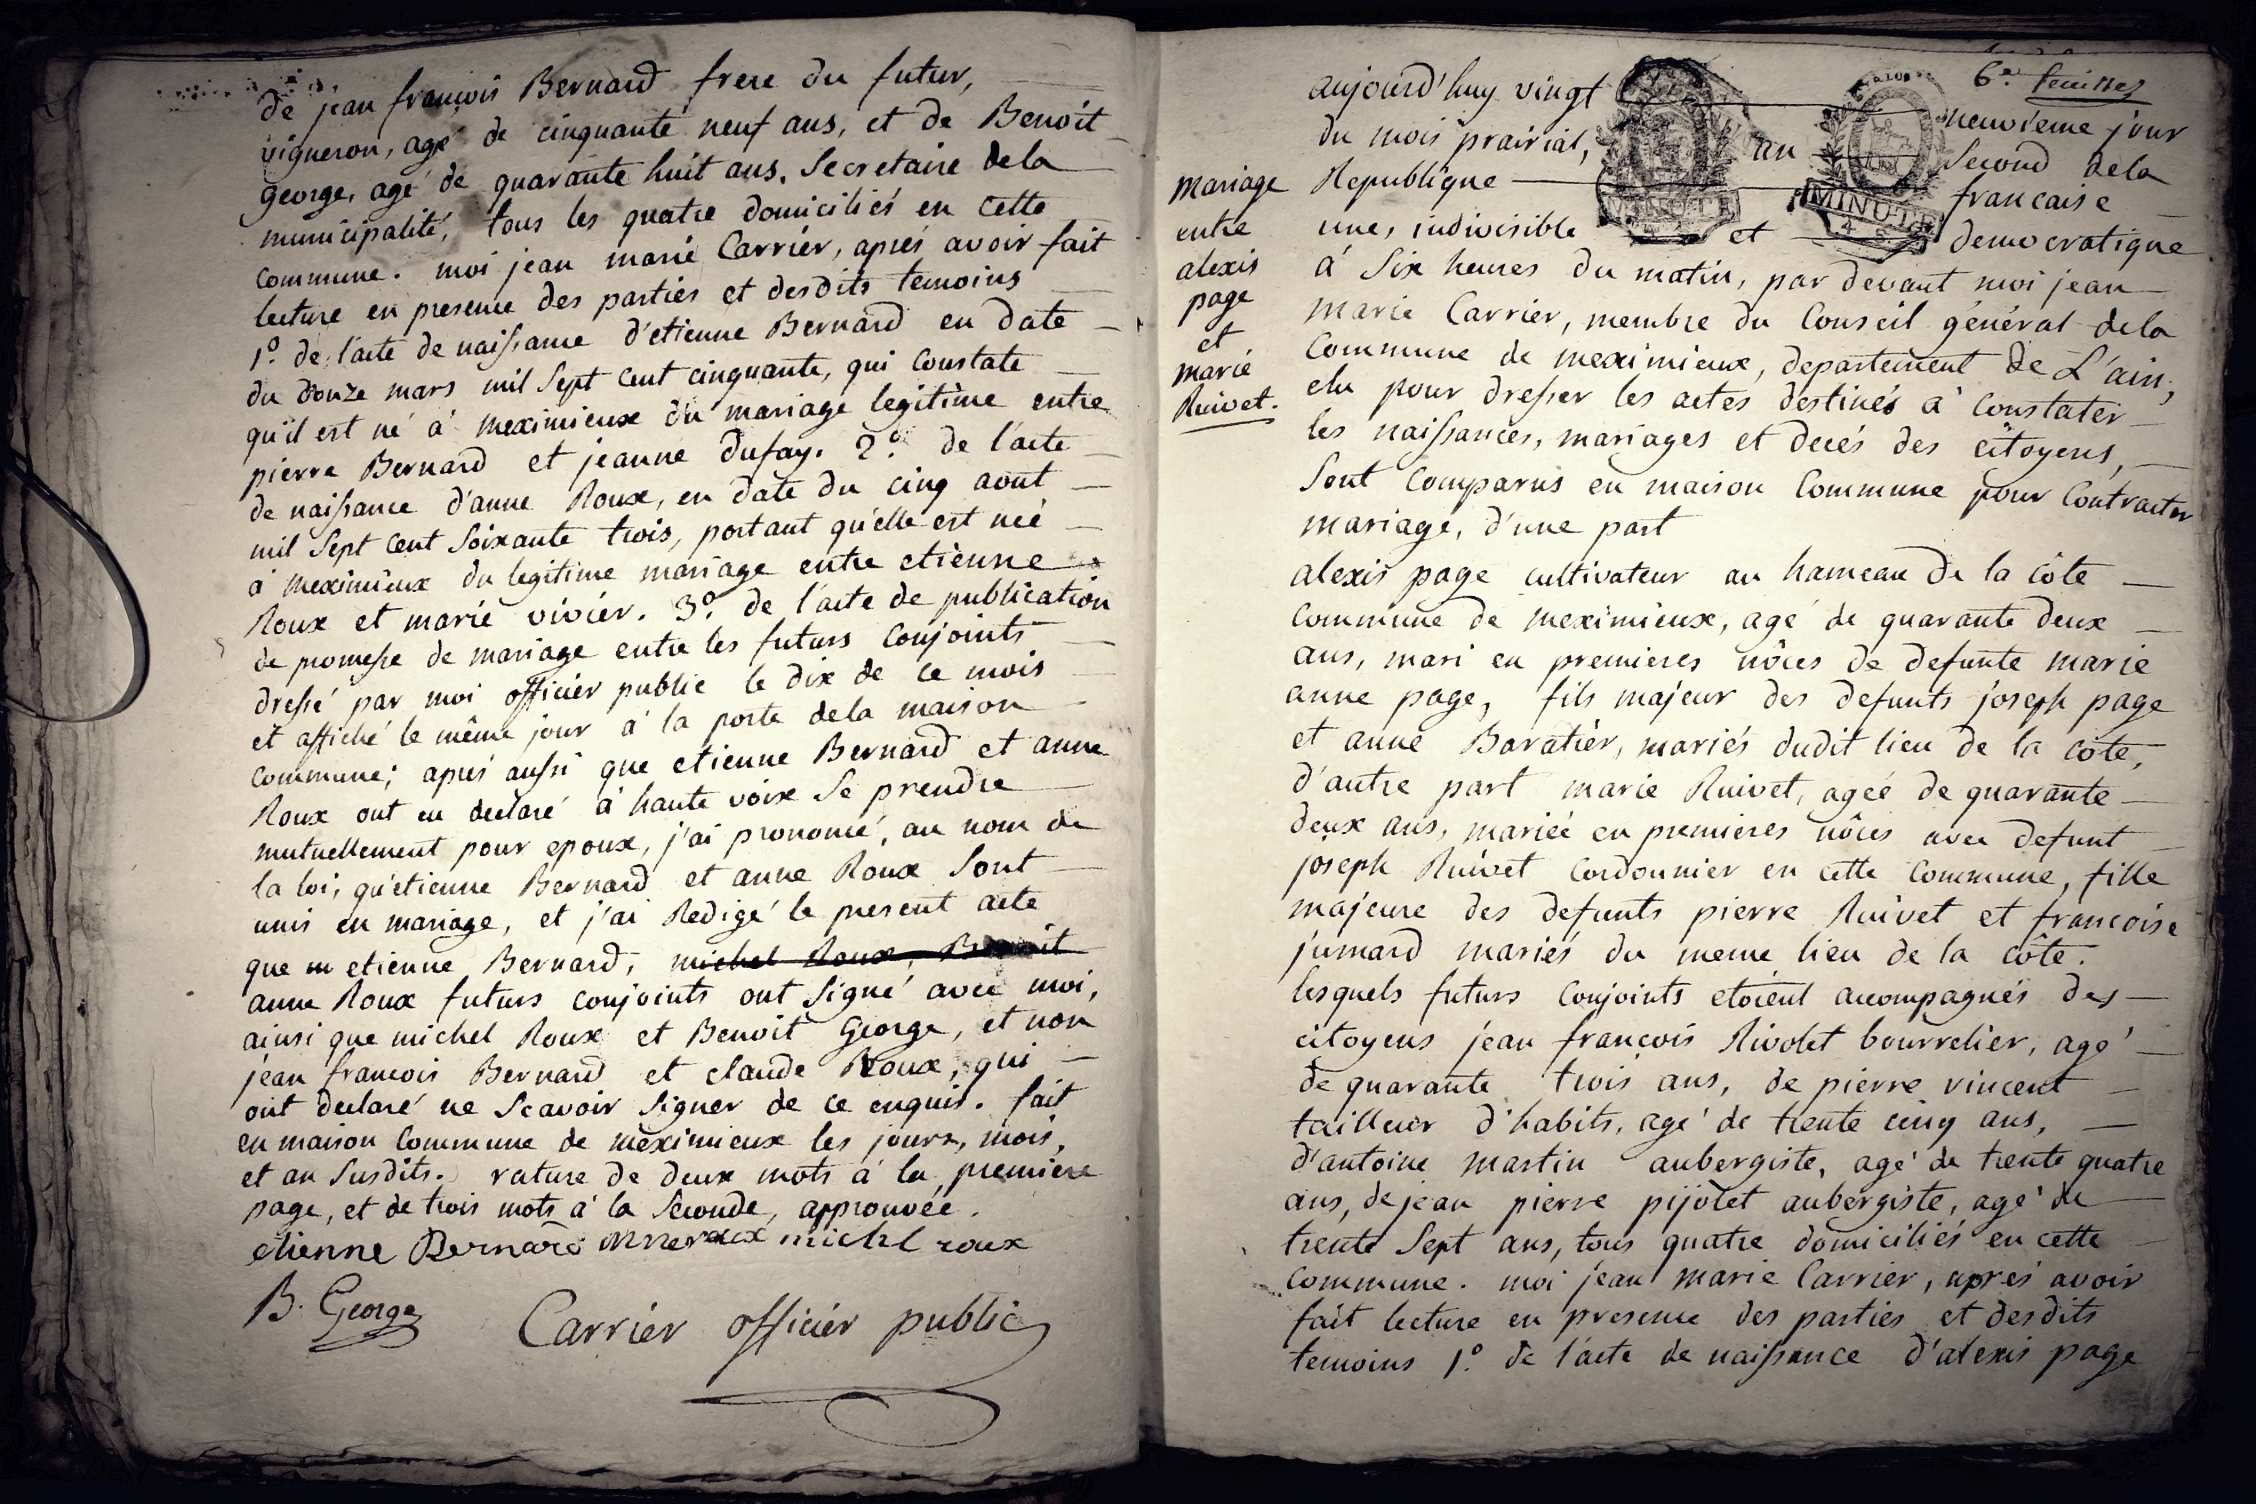 de jean françois Bernard frere du futur,
vigneron, agé de cinquante neuf ans, et de Benoit
george, agé de quarante huit ans, Secretaire dela
municipalité, tous les quatre domiciliés en cette
commune. moi jean marie Carrier, aprés avoir fait
lecture en presence des parties et desdits temoins
1º. de l'acte de naissance d'etienne Bernard en date
du douze mars mil Sept cent cinquante, qui Constate
qu'il est né à meximieux du mariage legitime entre
pierre Bernard et jeanne Dufay. 2º. de l'acte
de naissance d'anne Roux, en date du cinq aout
mil Sept cent Soixante trois, portant qu'elle est neé
à meximieux du legitime mariage entre etienne
Roux et marie vivier. 3º. de l'acte de publication
de promesse de mariage entre les futurs Conjoints
dressé par moi officier public le dix de ce mois
et affiché le même jour à la porte dela maison
commune; aprés aussi que etienne Bernard et anne
Roux ont eu declaré à haute voix Se prendre
mutuellement pour epoux, j'ai prononcé, au nom de
la loi, qu'etienne Bernard et anne Roux Sont
unis en mariage, et j'ai Redigé le present acte
que etienne Bernard, michel Roux, Benoit
anne Roux futurs conjoints ont Signé avec moi,
ainsi que michel Roux et Benoit George, et non
jean francois Bernard et claude Roux, qui
ont declaré ne Scavoir Signer de ce enquis. fait
en maison Commune de meximieux les jours, mois,
et an Susdits. rature de deux mots à la premiere
page, et de trois mots à la Seconde, approuvée.
etienne Bernard anne roux michel roux
B. George
Carrier officier public
6e. feuillet
aujourd'huy vingt neuvieme jour
du mois prairial, an Second dela
Republique francaise
une, indivisible et democratique
MINUTE
MINUTE
4 S
mariage
entre
alexis
page
et
marie
Ruivet.
à Six heures du matin, par devant moi jean
marie Carrier, membre du Conseil général dela
Commune de meximieux, departement de L'ain,
elu pour dresser les actes destinés à Constater
les naissances, mariages et decés des citoyens,
Sont Comparus en maison Commune pour Contracter
mariage, d'une part
alexis page cultivateur au hameau de la côte
Commune de meximieux, agé de quarante deux
ans, mari en premieres nôces de defunte marie
anne page, fils majeur des defunts joseph page
et anne Baratier, mariés dudit lieu de la côte,
d'autre part marie Ruivet, ageé de quarante
deux ans, mariée en premieres nôces avec defunt
joseph Ruivet Cordonnier en cette Commune, fille
majeure des defunts pierre Ruivet et francoise
jumard mariés du meme lieu de la côte.
lesquels futurs Conjoints etoient accompagnés des
citoyens jean françois Rivolet bourrelier, agé
de quarante trois ans, de pierre vincent
tailleur d'habits, agé de trente cinq ans,
d'antoine martin aubergiste, agé de trente quatre
ans, de jean pierre pijolet aubergiste, agé de
trente Sept ans, tous quatre domiciliés en cette
Commune. moi jean marie Carrier, aprés avoir
fait lecture en presence des parties et desdits
temoins 1º. de l'acte de naissance d'alexis page